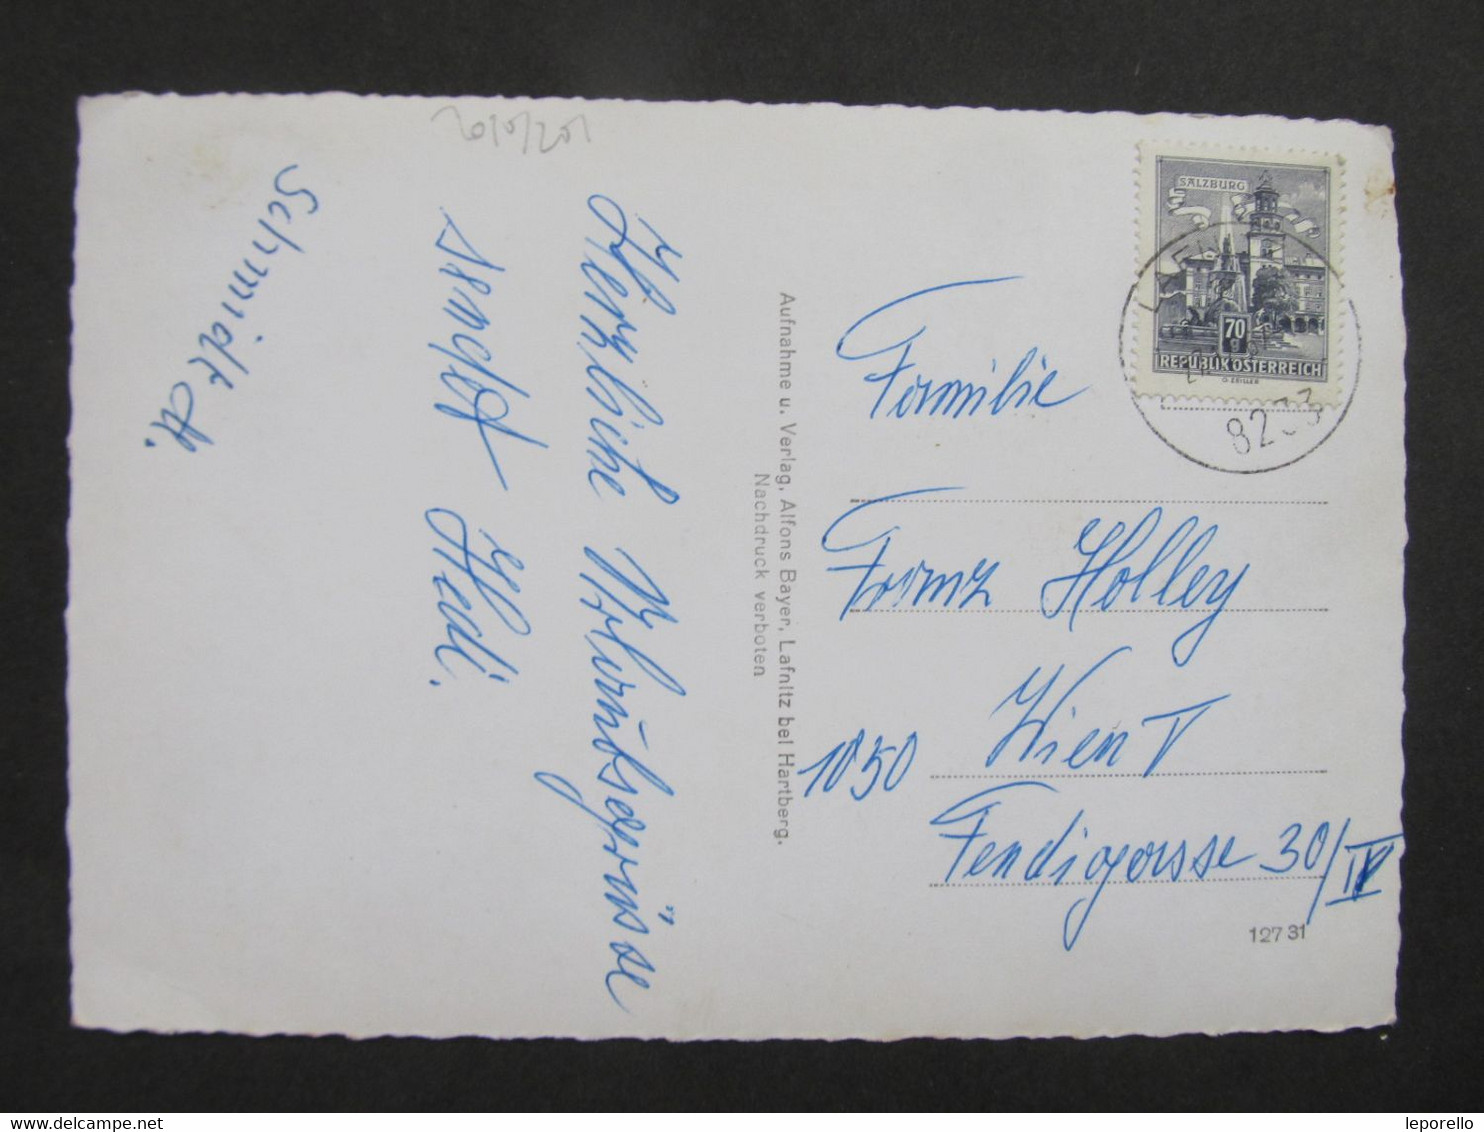 Herzliche Urlaubsgrüsse
sendet Hedi.
Schmidt H.
Aufnahme u. Verlag, Alfons Bayer, Lafnitz bei Hartberg.
Nachdruck verboten
SALZBURG
70 g
REPUBLIK ÖSTERREICH
8233
Familie
Franz Holley
Wien V
1050
Fendigasse 30/IV
127 31
leporello